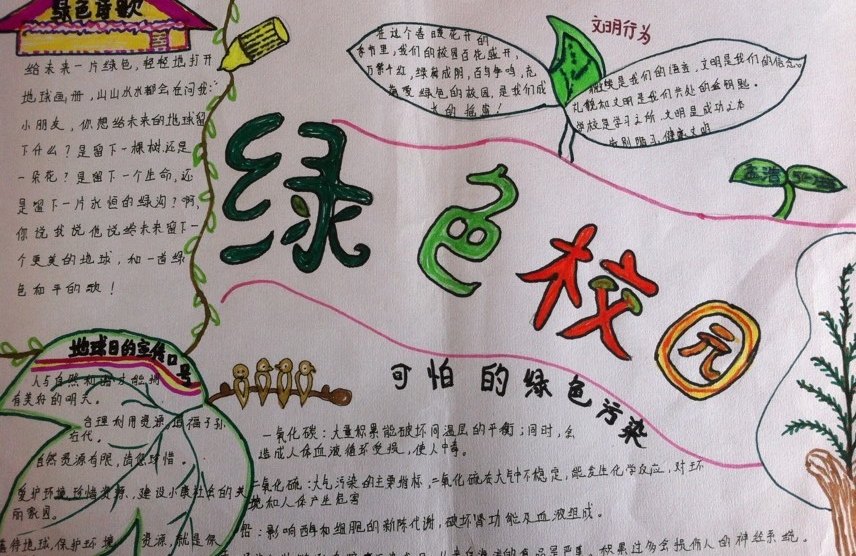 绿色音歌
给未来一片绿色,轻轻地打开
地球画册,山山水水都会在问我:
小朋友,你想给未来的地球留
下什么?是留下一棵树,还是
一朵花?是留下一个生命,还
是留下一片永恒的绿沟?啊,
你说我说他说给未来留下一
个更美的地球,和一首绿
色和平的歌!
在这个春暖花开的
季节里,我们的校园百花盛开,
万紫千红,绿树成阴,百鸟争鸣,
绿色的校园,是我们成
长的摇篮!
文明行为
是我们的语言,文明是我们的信念。
礼貌和文明是我们共处的金钥匙。
学校是学习之所,文明是成功之本
告别陋习,健康文明
绿色校园
地球日的宣传口号
人与自然和
有美好的明天。
合理利用资源,造福子孙
近代。
自然资源有限,请您珍惜。
爱护环境,珍惜资源,建设小康社会的美
丽家园。
善待地球,保护环境 资源,就是保
可怕的绿色污染
一氧化碳:大量积累能破坏同温层的平衡;同时,会
造成人体血液循环受损,使人中毒。
二氧化硫:大气污染的主要指标,二氧化硫在大气中不稳定,能发生化学反应,对环
境和人体产生危害
铅:影响酶和细胞的新陈代谢,破坏肾功能及血液组成。
积累过多会损伤人的神经系统。